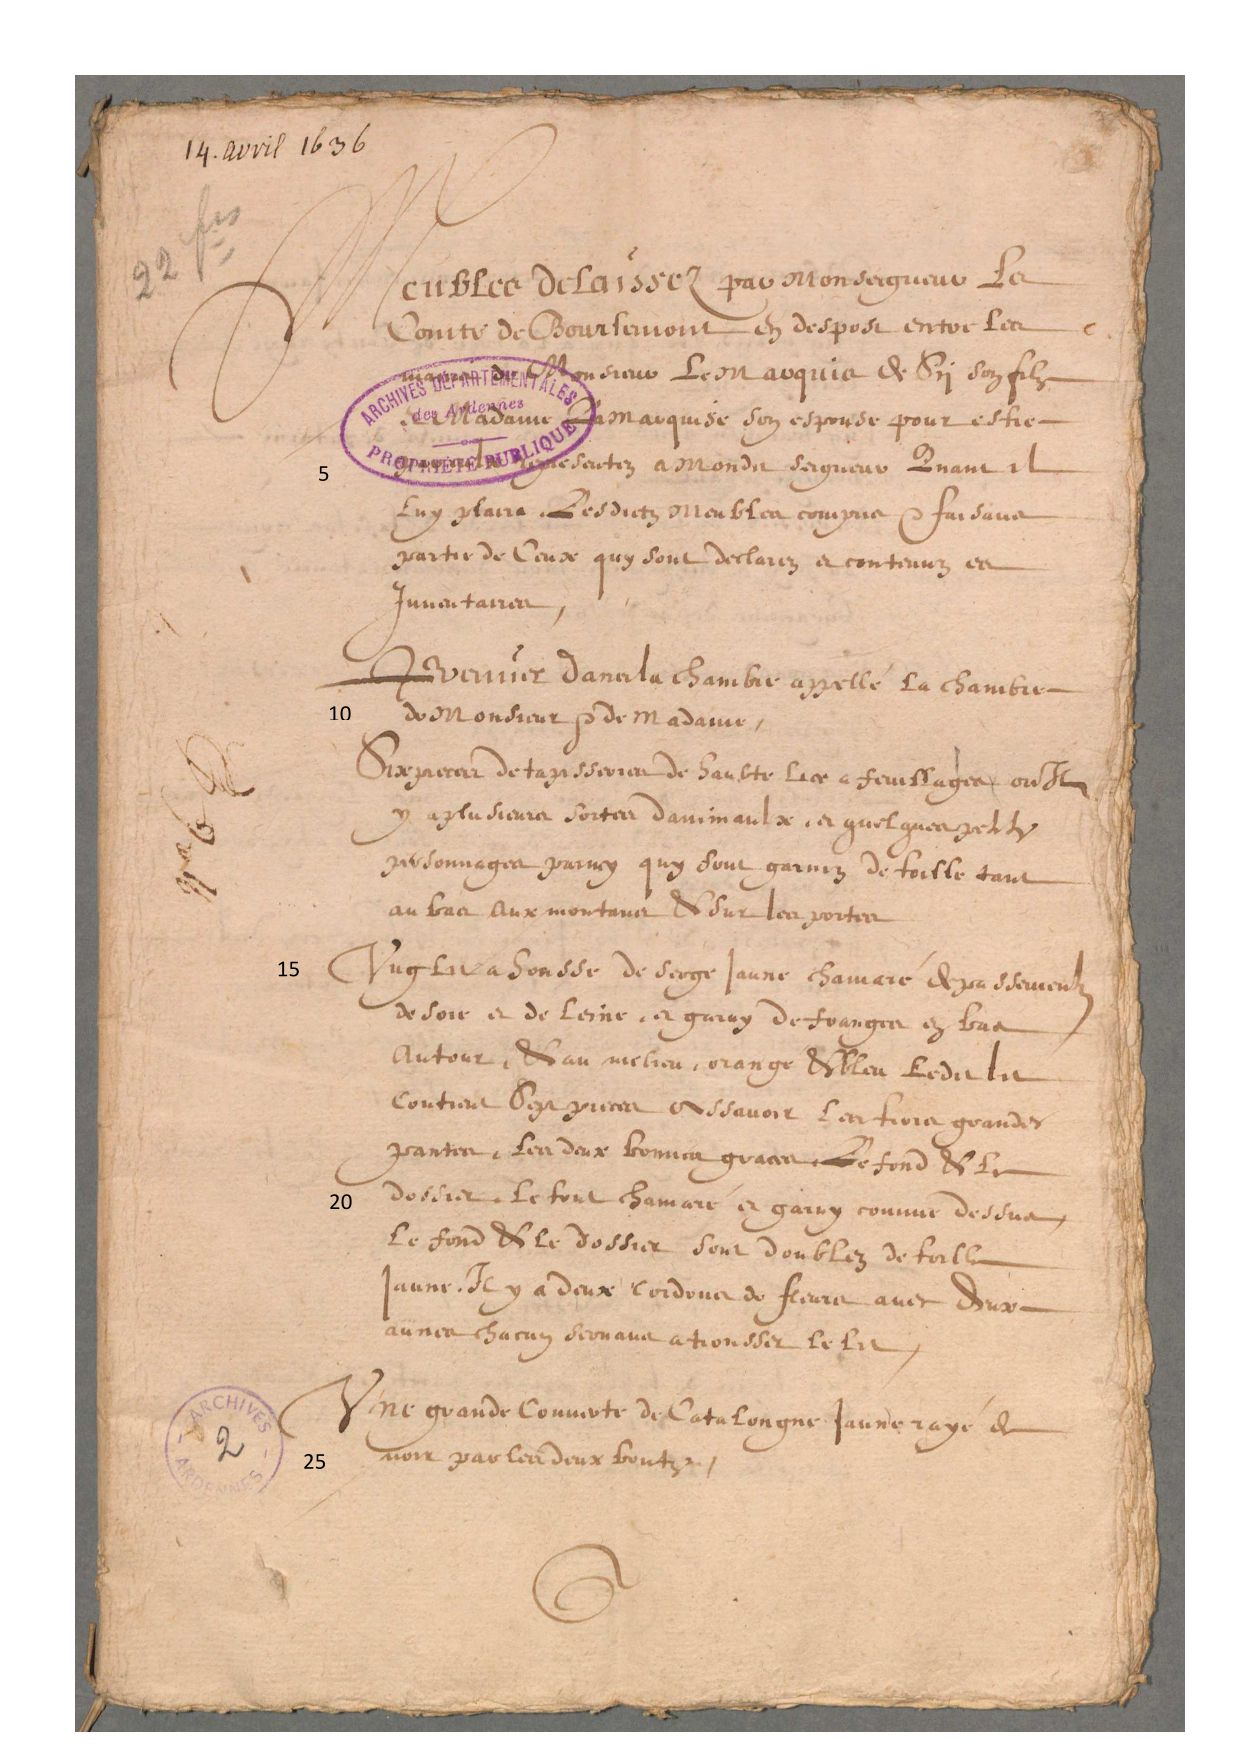 14. avril 1636
22 frs
Meubles delaissez par Monseigneur Le
Comte de Bourlemont en despost entre Les
mains de Monsieur Le Marquis de Sy son filz
& Madame La Marquise son espouse pour estre
ARCHIVES DEPARTEMENTALES
des Ardennes
PROPRIÉTÉ PUBLIQUE
5
representez a Mondit seigneur Quant il
Luy plaira. Lesdictz Meubles compris & faisans
partie de Ceux quy sont declarez et contenuz es
Inventaires,
Premier dans la chambre appellé La chambre
10
de Monsieur & de Madame,
Six pieces de tapisseries de haulte Lice a feuillages ou Il
y a plusieurs sortes d'animaulx, et quelques petitz
personnages parmy quy sont garniz de toille tant
au bas aux montans & sur les portes
15
Ung Lit a housse de serge Jaune chamaré de passementz
de soie et de Leine, et garny de franges en bas
Autour, & au melieu, orange & bleu Ledit lit
Contient Sept pieces Assavoir Les trois grandes
pantes, Les deux bonnes graces, Le fond & Le
20
dossier, Le tout chamaré et garny comme dessus,
Le fond & Le dossier sont doublez de toille
Jaune. Il y a deux Cordons de fleuret avec deux
aunes chacun servans a trousser Le Lit,
Une grande Couverte de Catalongne Jaune rayé de
25
noir par les deux boutz,
ARCHIVES
2
ARDENNES